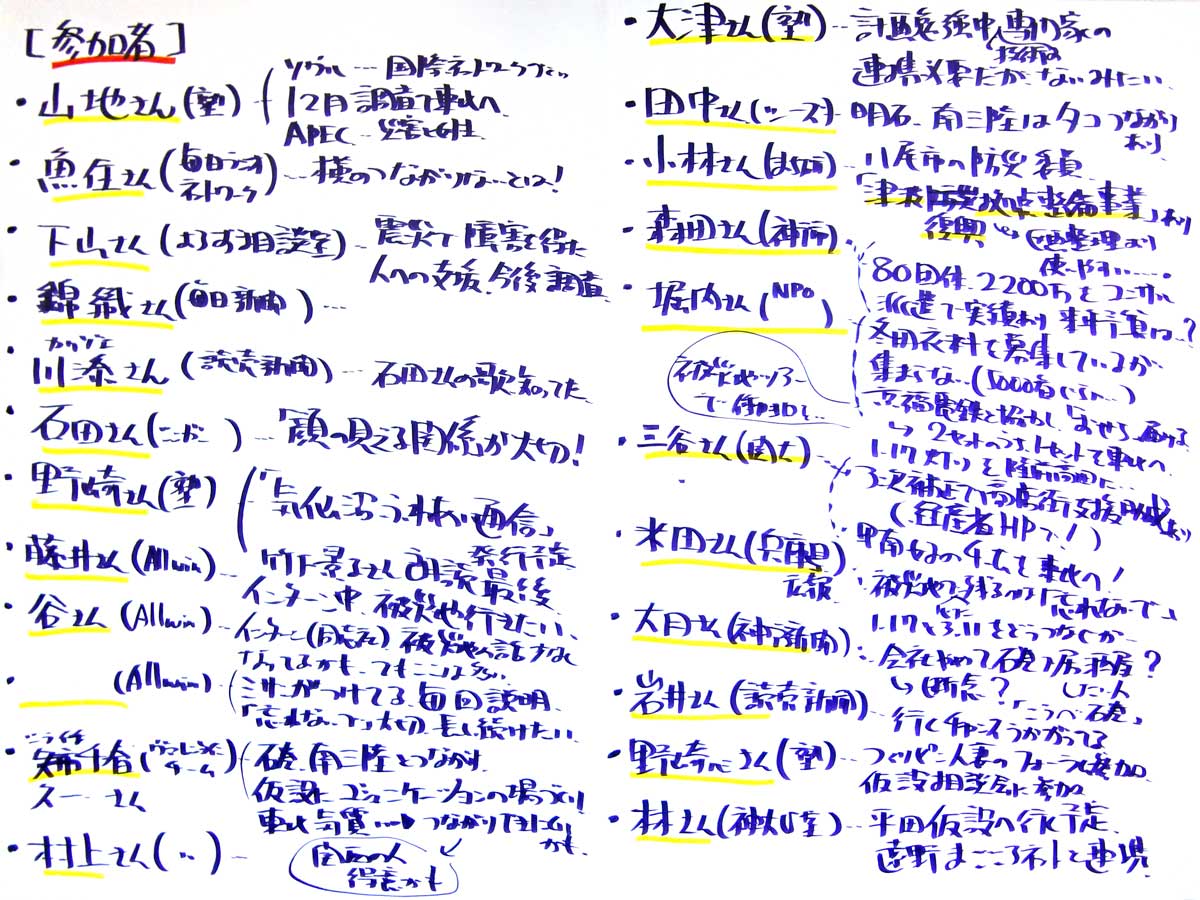 [参加者]
・山地さん(塾)
ソウル…国際ネットワークづくり
12月調査で東北へ
APEC…災害と女性
・魚住さん(毎日ラジオネットワーク)…横のつながりないとは!
・下山さん(よろず相談室)…震災で障害を得た
人への支援、今後調査
・錦織さん(毎日新聞)…
カワゾエ
・川添さん(読売新聞)…石田さんの歌知ってた
・石田さん(シンガー)…「顔の見える関係が大切!
・野崎さん(塾)「気仙沼ふれあい通信」
発行予定
・藤井さん(Allwin)…竹下景子さん朗読最後
インターン中、被災地行きたい、
・谷さん(Allwin)…インターン(同志社)被災地の話すくなく
なってるかも、でもここは多い
・(Allwin)
ミサンガつけてる、毎回説明
「忘れない」コト大切、長く続けたい
さん
石巻、南三陸とつながり
仮設にコミュニケーションの場づくり
東北気質…つながりできにくい
かも
・村上さん(〃)…
関西の人
得意かも
・大津さん(塾)…計画勉強中、専門家の
技術的
連携必要だが、ないみたい
・田中さん(シーズ)…明石、南三陸はタコつながり
あり
・小林さん(まち研)…八尾市の防災着
「津波防災拠点整備事業」あり
復興も区画整理より
使いやすい……
・森田さん(神戸)
・堀内さん(NPO)
80団体2200万をコンサル
派遣で実績あり、来年度は…?
冬用衣料を募集しているが
集まらない(5000着くらい…)
京福電鉄と協力し、おせち届ける
↳2セットのうち1セットを東北へ
1.17灯りを陸前高田に…
被災地ツアー
で
・三谷さん(関大)
3次補正で商店街支援助成あり
(経産省HPで!)
・米田さん(兵庫県)
広報
甲南女子のチームを東北へ!
被災地で残るのが「忘れないで」
・大月さん(神戸新聞)
1.17と3.11をどうつなぐか…
会社やめて石巻で居酒屋?
した人
・岩井さん(読売新聞)
↳断念?「こうべ石巻」
行くチャンスうかがってる
・野崎さん(塾)…フィリピン人妻のフォーラム参加
仮設相談会に参加
・林さん(神大)…平田仮設へ行く予定
遠野まごころネットと連携